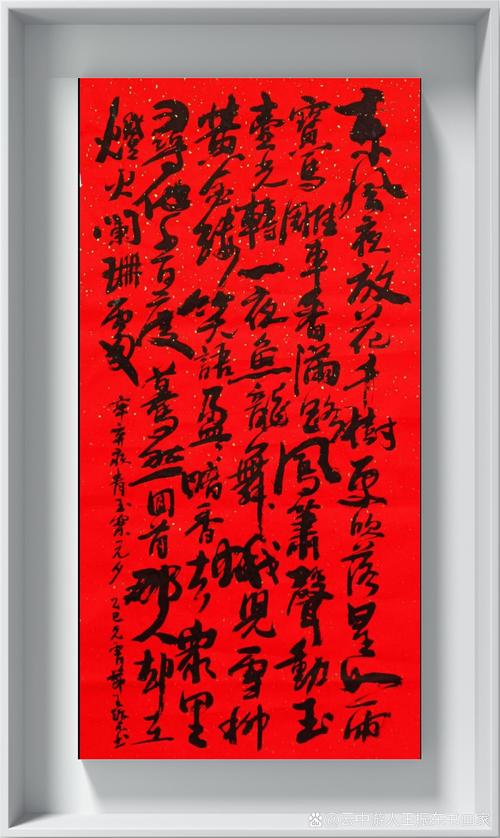 東風夜放花千樹更吹落星如雨
寶馬雕車香滿路鳳蕭聲動玉
壺光轉一夜魚龍舞蛾兒雪柳
黄金縷笑語盈盈暗香去衆里
尋他千百度驀然回首那人却在
燈火闌珊處
辛弃疾青玉案元夕 乙巳元宵節王振东书
@云中旅人王振东书画家